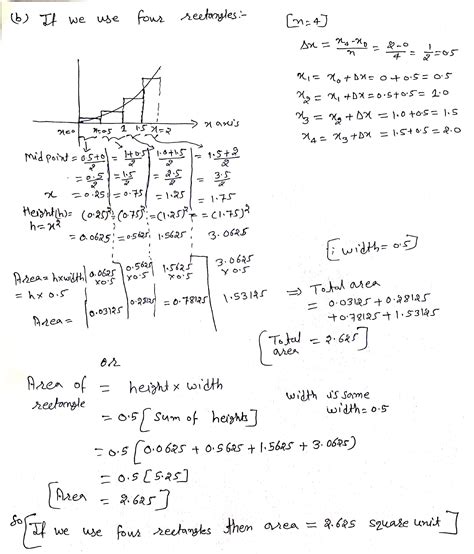 (b) If we use four rectangles:-
[n=4]
Δx = (x₄-x₀)/n = (2-0)/4 = 1/2 = 0.5
x₁ = x₀ + Δx = 0 + 0.5 = 0.5
x₂ = x₁ + Δx = 0.5 + 0.5 = 1.0
x₃ = x₂ + Δx = 1.0 + 0.5 = 1.5
x₄ = x₃ + Δx = 1.5 + 0.5 = 2.0
x=0 x=0.5 1 1.5 x=2 → x axis
Mid point = (0.5+0)/2 = (1+0.5)/2 (1.0+1.5)/2 = (1.5+2)/2
= 0.5/2 = 1.5/2 = 2.5/2 = 3.5/2
x = 0.25 = 0.75 = 1.25 = 1.75
Height(h) = (0.25)² = (0.75)² = (1.25)² = (1.75)²
h = x²
= 0.0625 = 0.5625 1.5625 3.0625
[∵ width = 0.5]
Area = h×width 0.0625 ×0.5 0.5625 ×0.5 1.5625 ×0.5 3.0625 ×0.5
= h × 0.5
Area = 0.03125 = 0.78125 1.53125
⇒ Total area
= 0.03125 + 0.28125
+0.78125 + 1.53125
[Total area = 2.625]
or
Area of rectangle = height × width
width is same
width = 0.5
= 0.5 [sum of heights]
= 0.5 [0.0625 + 0.5625 + 1.5625 + 3.0625]
= 0.5 [5.25]
[Area = 2.625]
So [If we use four rectangles then area = 2.625 square unit]